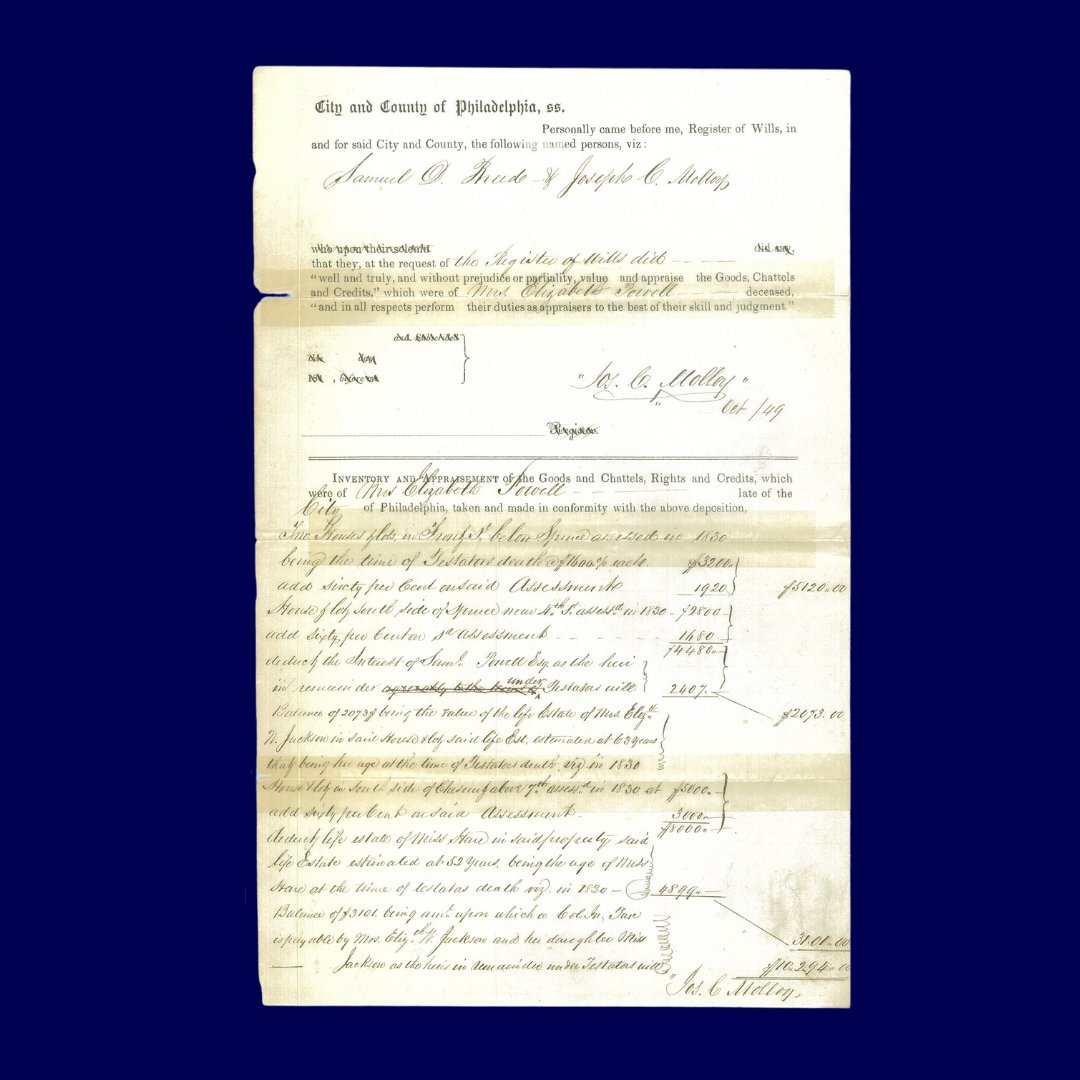 City and County of Philadelphia, ss.
Personally came before me, Register of Wills, in
and for said City and County, the following named persons, viz:
Samuel D. Breed & Joseph C. Molloy
who upon their solemn did say,
that they, at the request of the Register of Wills did
"well and truly, and without prejudice or partiality, value and appraise the Goods, Chattels
and Credits," which were of Mrs. Elizabeth Powell deceased,
"and in all respects perform their duties as appraisers to the best of their skill and judgment."
and
day
"Jos. C. Molloy"
Oct /49
Register.
INVENTORY AND APPRAISEMENT of the Goods and Chattels, Rights and Credits, which
were of Mrs Elizabeth Powell late of the
City of Philadelphia, taken and made in conformity with the above deposition,
Two Houses & lots in Front St. below Spruce assessed in 1830
being the time of Testators death @ $1600 % each. $3200.
add sixty per Cent on said Assessment 1920 $5120.00
House & lot south side of Spruce near 4th St. assessd in 1830 - $2800 -
add sixty per Cent on sd Assessment - - - 1680
$4480 -
deduct the Interest of Saml. Powell Esq. as the heir
in remainder agreeably to the terms of under Testators will 2407. - $2073.00
Balance of 2073$ being the value of the life Estate of Mrs. Elizth
W. Jackson in said House & lot said life Est. estimated at 63 years
that being her age at the time of Testators death viz in 1830
House & lot on south side of Chesnut above 7th assessd in 1830 at $5000.-
add sixty per Cent on said Assessment - 3000.-
$8000.-
deduct life estate of Miss Hare in said property, said
life Estate estimated at 52 Years. being the age of Miss
Hare at the time of testatos death viz. in 1830 - 4899. -
Balance of $3101. being amt. upon which a Col. In. Tax
is payable by Mrs. Elizth W. Jackson and her daughter Miss 3101.00
Jackson as the heirs in remainder under Testators will $10.294.00
"Jos. C Molloy.